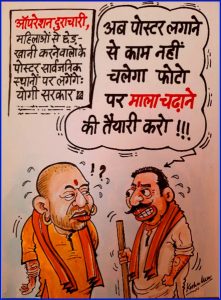 ऑपरेशन दुराचारी,
महिलाओं से छेड़-
खानी करने वालों के
पोस्टर सार्वजनिक
स्थानों पर लगेंगे:
योगी सरकार
अब पोस्टर लगाने
से काम नहीं
चलेगा फोटो
पर माला चढ़ाने
की तैयारी करो !!!
! ?